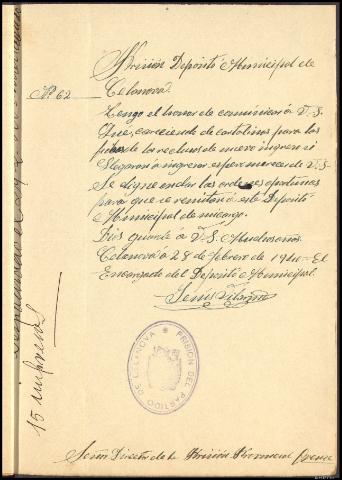 Prisión Depósito Municipal de
Celanova.
Nº 62
Tengo el honor de comunicar á V. S.
Que, careciendo de cartolinas para las
de los reclusos de nuevo ingreso si
llegaran á ingresar espero merced de V. S.
Se digne en dar las ordenes oportunas
para que se remitan á este Depósito
Municipal de mi cargo.
Dios guarde á V. S. Muchos años.
Celanova á 28 de febrero de El
Encargado del Depósito Municipal.
PRISION DEL PARTIDO DE CELANOVA
15 impresos
Señor Director de la Prisión Provincial Orense